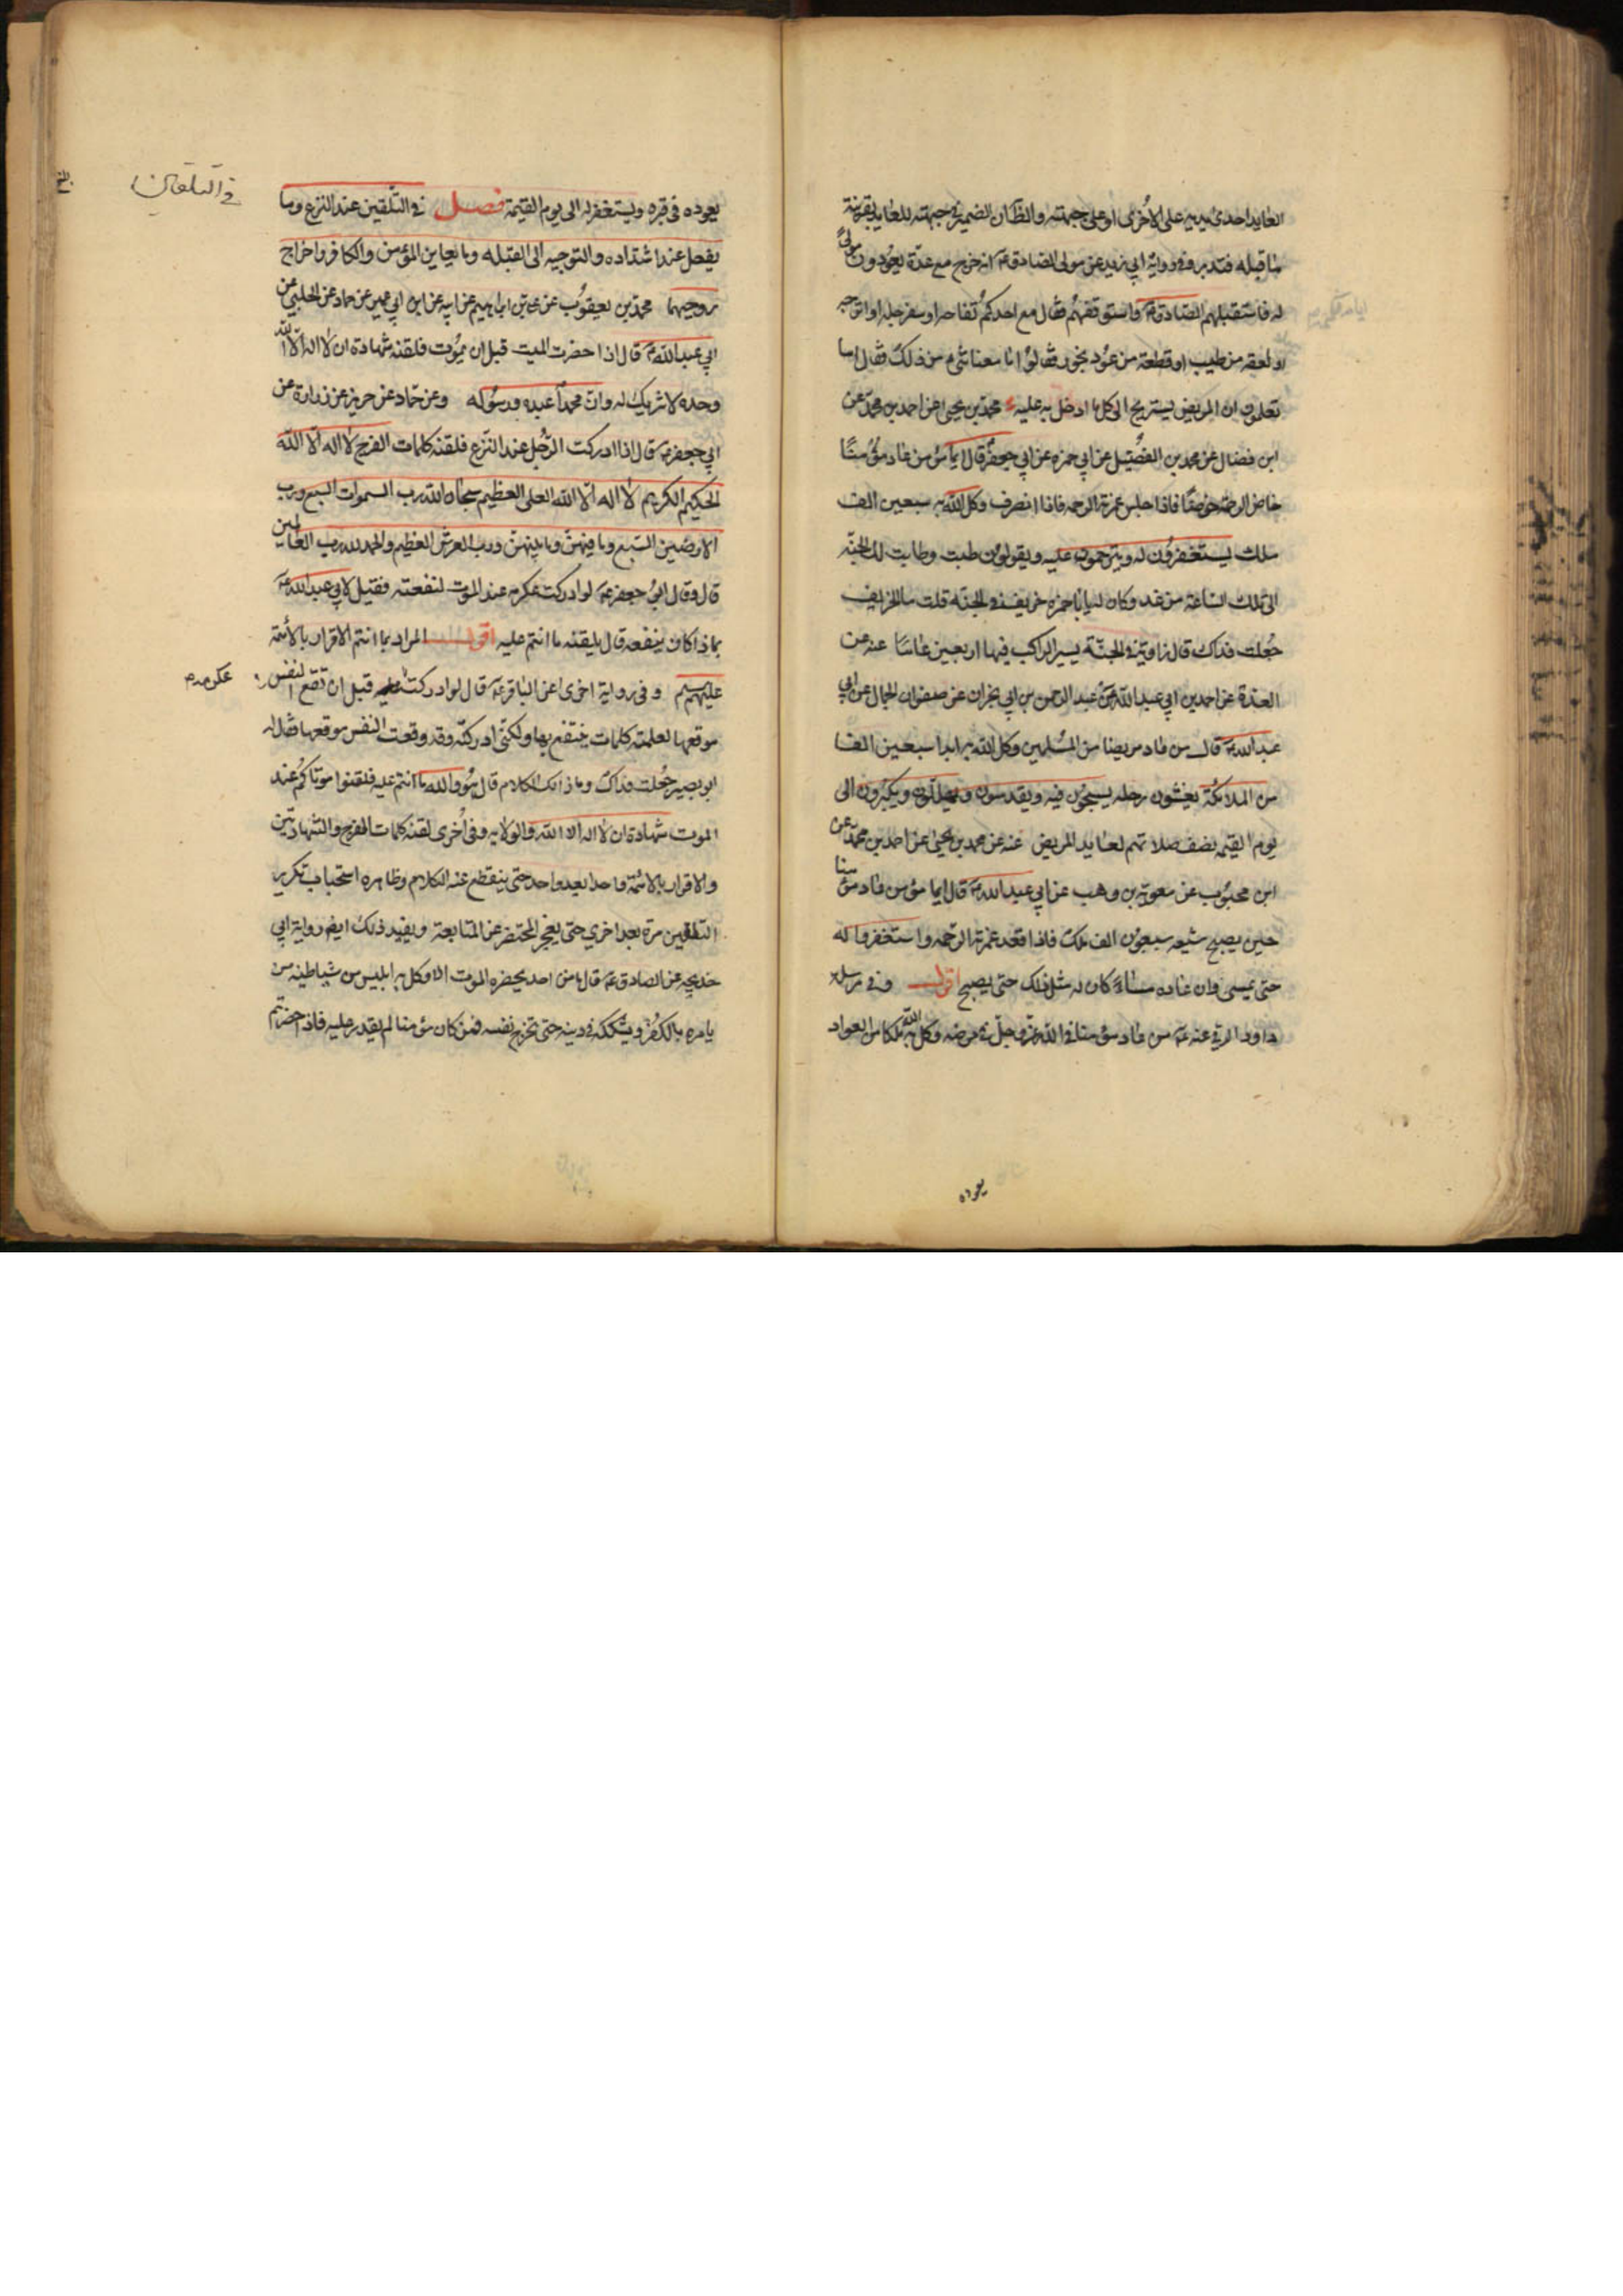 العايد احدى يديه على الاخرى او على جبهته والظاهر ان الضمير في جبهته للعايد بقرينة
ما قبله فتدبر وفي رواية ابي زيد عن مولى الصادق ع انه خرج مع عدة يعودون مولى
له فاستقبلهم الصادق ع فاستوقفهم فقال مع احدكم تفاحه او سفرجله او اترجه
او لعقه من طيب او قطعة من عود بخور فقالوا ما معنا شيء من ذلك فقال اما
تعلمون ان المريض يستريح الى كل ما ادخل به عليه محمد بن يحيى عن احمد بن محمد عن
ابن فضال عن محمد بن الفضيل عن ابي حمزه عن ابي جعفر ع قال ايما مؤمن عاد مؤمنا
خاض الرحمة خوضا فاذا جلس غمرته الرحمه فاذا انصرف وكل الله به سبعين الف
ملك يستغفرون له ويترحمون عليه ويقولون طبت وطابت لك الجنه
الى تلك الساعة من غد وكان له يا ابا حمزه خريف في الجنه قلت ما الخريف
جعلت فداك قال زاوية في الجنة يسير الراكب فيها اربعين عاما عنه عن
العدة عن احمد بن ابي عبد الله عن عبد الرحمن بن ابي نجران عن صفوان الجمال عن ابي
عبد الله ع قال من عاد مريضا من المسلمين وكل الله به ابدا سبعين الفا
من الملائكة يغشون رحله يسبحون فيه ويقدسون ويهللون ويكبرون الى
يوم القيمه نصف صلاتهم لعايد المريض عنه عن محمد بن يحيى عن احمد بن محمد عن
ابن محبوب عن معوية بن وهب عن ابي عبد الله ع قال ايما مؤمن عاد مؤمنا
حين يصبح شيعه سبعون الف ملك فاذا قعد غمرته الرحمه واستغفروا له
حتى يمسى وان عاده مساء كان له مثل ذلك حتى يصبح اقول وفي مرسله
داود الرقي عنه ع من عاد مؤمنا في الله عز وجل في مرضه وكل الله به ملكا من العواد
يعوده
في التلقين
يعوده في قبره ويستغفر له الى يوم القيمة فصل في التلقين عند النزع وما
يفعل عند اشتداده والتوجيه الى القبله وما يعاين المؤمن والكافر واخراج
روحيهما محمد بن يعقوب عن علي بن ابراهيم عن ابيه عن ابن ابي عمير عن حماد عن الحلبي عن
ابي عبد الله ع قال اذا حضرت الميت قبل ان يموت فلقنه شهادة ان لا اله الا الله
وحده لا شريك له وان محمدا عبده ورسوله وعن حماد عن حريز عن زرارة عن
ابي جعفر ع قال اذا ادركت الرجل عند النزع فلقنه كلمات الفرج لا اله الا الله
الحكيم الكريم لا اله الا الله العلي العظيم سبحان الله رب السموات السبع ورب
الارضين السبع وما فيهن وما بينهن ورب العرش العظيم والحمد لله رب العالمين
قال وقال ابو جعفر ع لو ادركت عكرمه عند الموت لنفعته فقيل لابي عبد الله ع
بماذا كان ينفعه قال يلقنه ما انتم عليه اقول المراد بما انتم الاقرار بالائمة
عليهم وفي رواية اخرى عن الباقر ع قال لو ادركت قبل ان تقع النفس
عكرمه
موقعها لعلمته كلمات ينتفع بها ولكني ادركته وقد وقعت النفس موقعها فقال له
ابو بصير جعلت فداك وما ذلك الكلام قال هو والله ما انتم عليه فلقنوا موتاكم عند
الموت شهادة ان لا اله الا الله والولايه وفي اخرى لقنه كلمات الفرج والشهادتين
والاقرار بالائمة واحدا بعد واحد حتى ينقطع عنه الكلام وظاهره استحباب تكرير
التلقين مرة بعد اخرى حتى يعجز المحتضر عن المتابعة ويفيد ذلك ايض رواية ابي
خديجه عن الصادق ع قال ما من احد يحضره الموت الا وكل به ابليس من شياطينه من
يامره بالكفر ويشككه في دينه حتى تخرج نفسه فمن كان مؤمنا لم يقدر عليه فاذا حضرتم